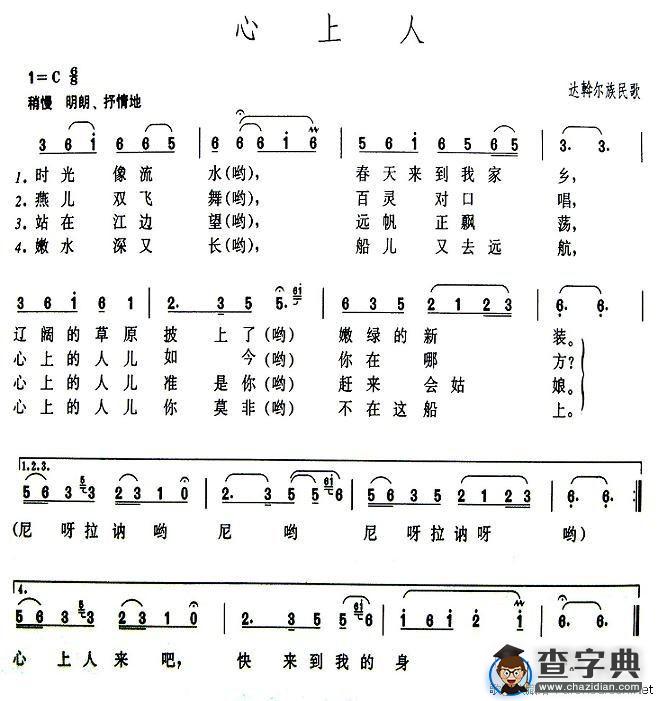 心上人
1=C 6/8
稍慢 明朗、抒情地
达斡尔族民歌
3 6 i 6 6 5 | 6 6 6 i 6 | 5 6 i 6 5 6 | 3. 3. |
1.时光像流水(哟), 春天来到我家乡,
2.燕儿双飞舞(哟), 百灵对口唱,
3.站在江边望(哟), 远帆正飘荡,
4.嫩水深又长(哟), 船儿又去远航,
3 6 i 6 1 | 2. 3 5 5. 6i | 6 3 5 2 1 2 3 | 6. 6. |
辽阔的草原披上了(哟) 嫩绿的新装。
心上的人儿如今(哟) 你在哪方?
心上的人儿准是你(哟) 赶来会姑娘。
心上的人儿你莫非(哟) 不在这船上。
1.2.3.
5 6 3 5 3 2 3 1 0 | 2. 3 5 5 6i 6 | 5 6 5 3 5 2 1 2 3 | 6. 6. :||
(尼呀拉讷哟 尼哟 尼呀拉讷呀哟)
4.
5 6 3 5 3 2 3 1 0 | 2. 3 5 6i 5 | i 6 i 2 i | 6. 6.
心上人来吧, 快来到我的身
查字典
www.chazidian.com